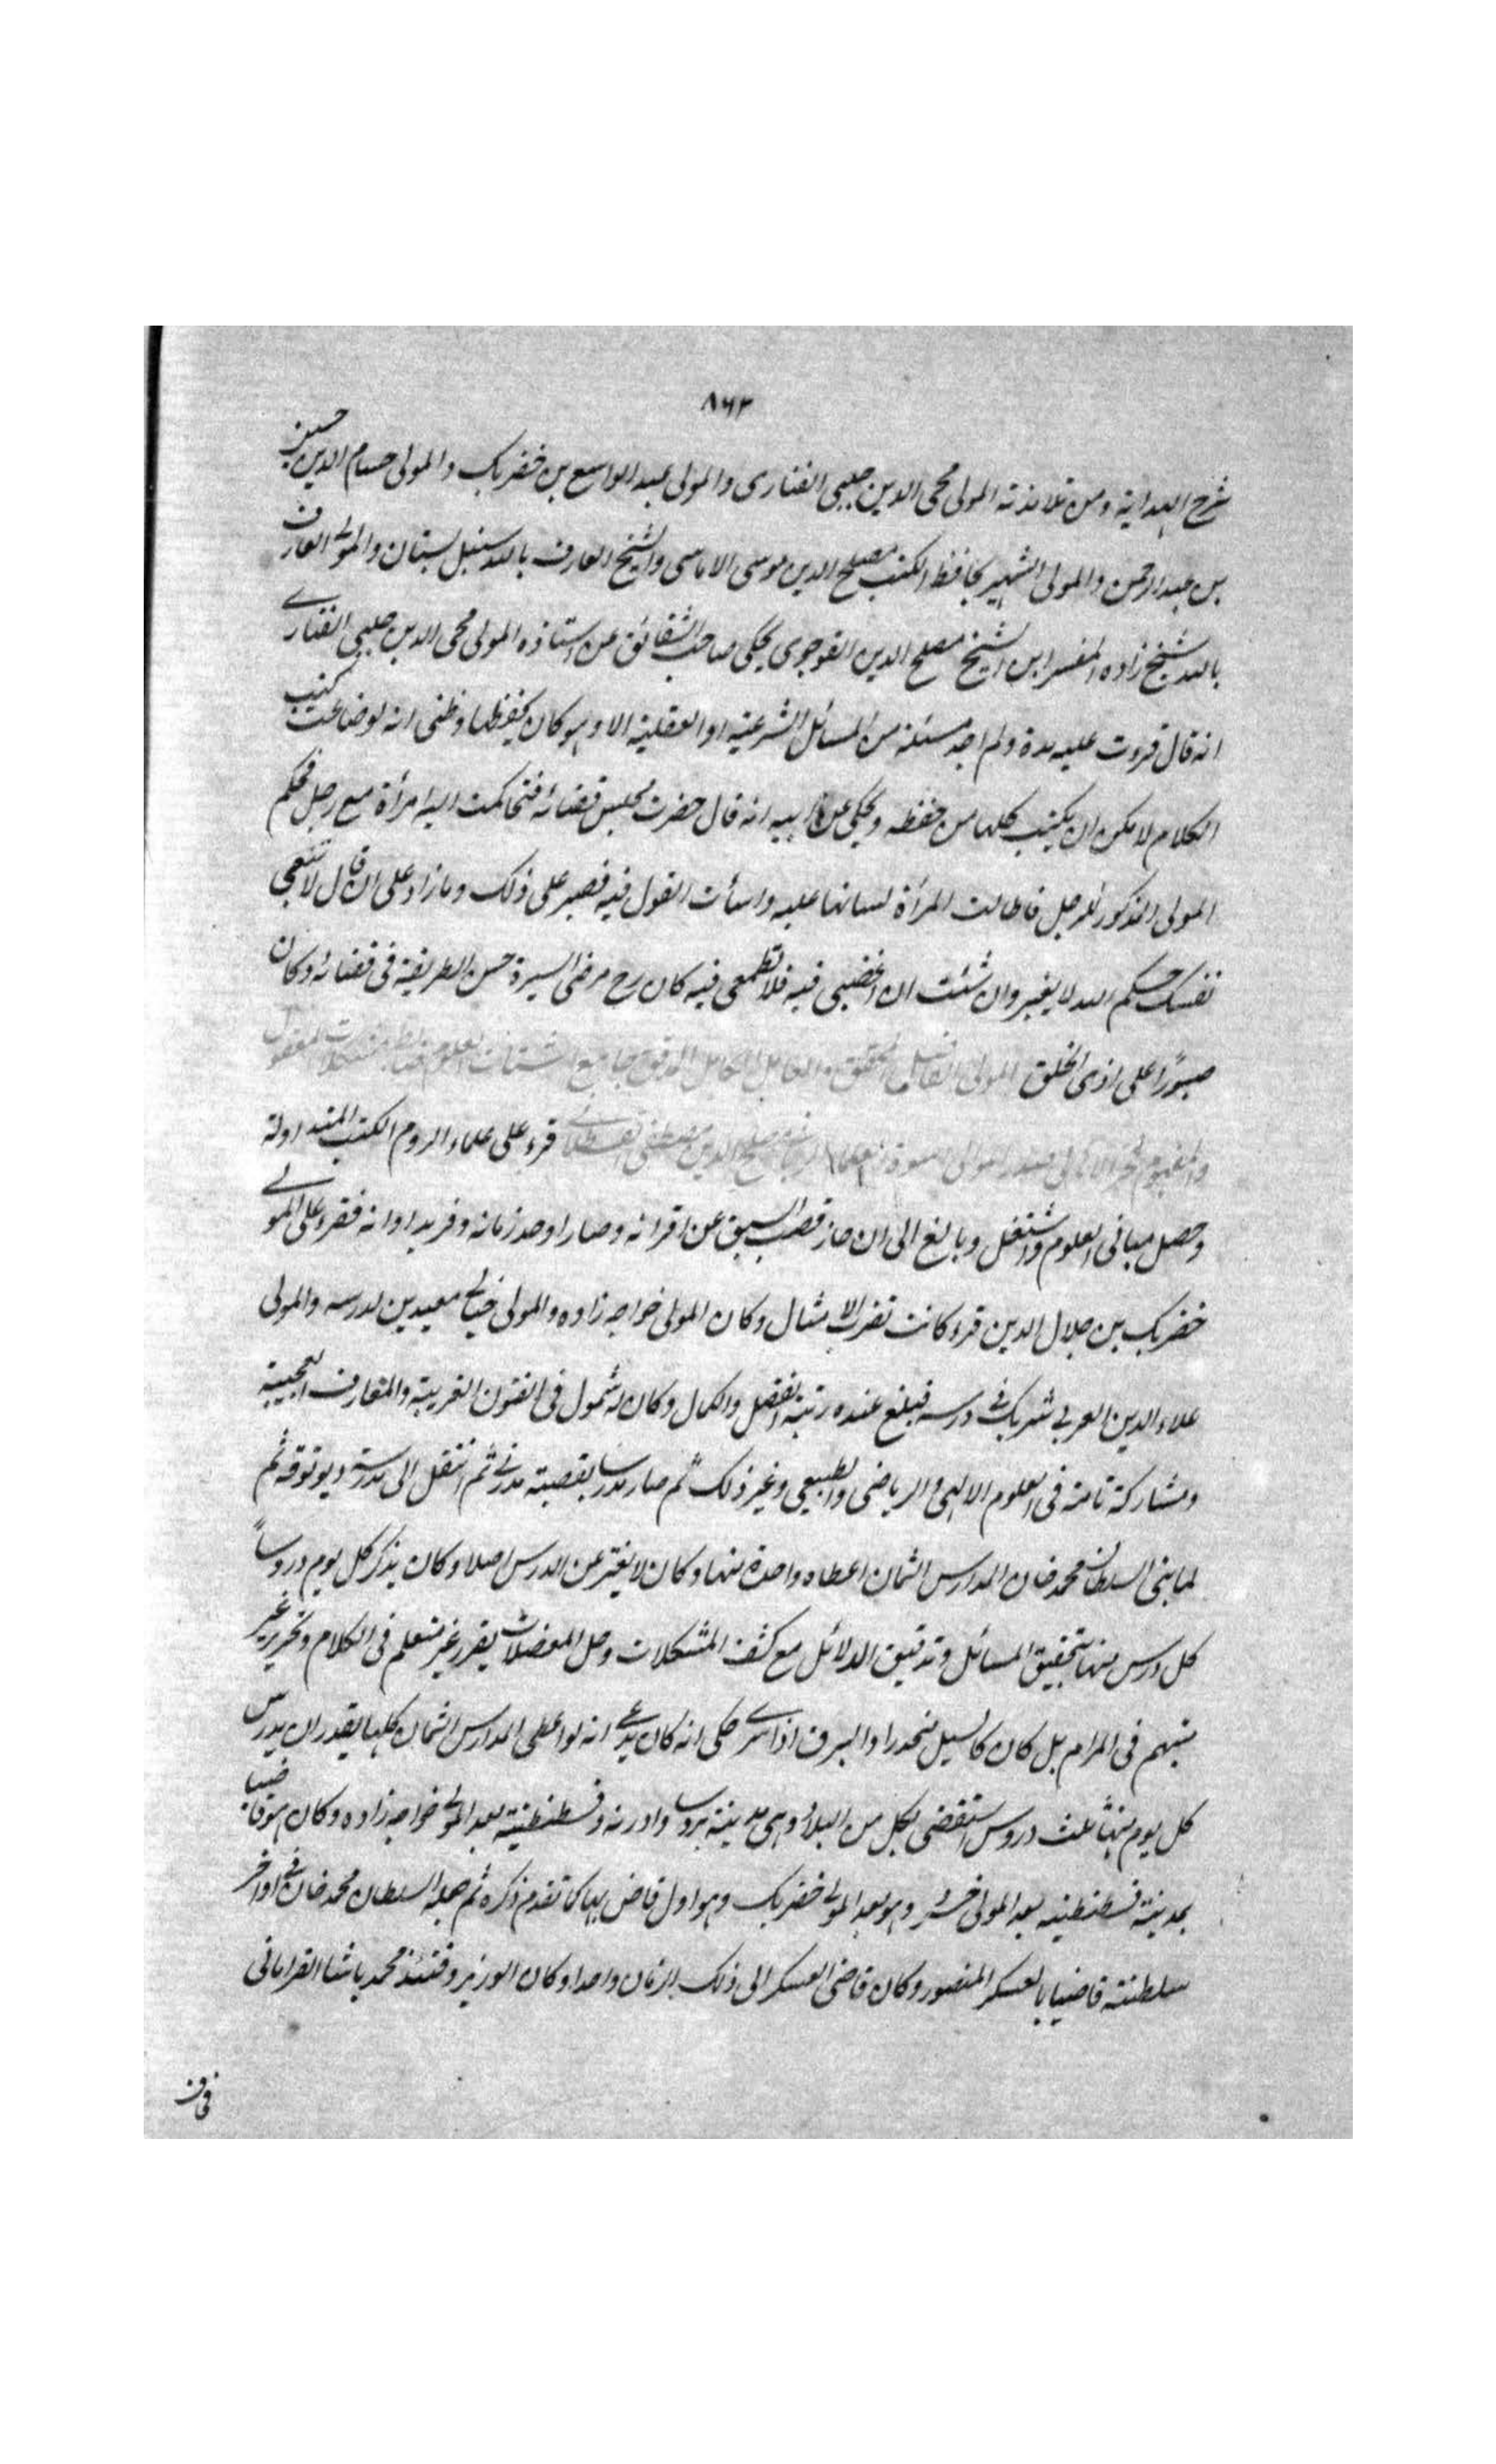 ٨٦٣
شرح الهداية ومن تلامذته المولى محيى الدين جلبى الفنارى والمولى عبد الواسع بن خضربك والمولى حسام الدين حسين
بن عبد الرحمن والمولى الشهير بحافظ الكتب مصلح الدين موسى الاماسى والشيخ العارف بالله سنبل سنان والمولى العارف
بالله شيخ زاده المفسر ابن الشيخ مصلح الدين القوجوى يحكى صاحب الشقائق عن استاذه المولى محيى الدين جلبى الفنارى
انه قال قروت عليه مدة ولم اجد مسئلة من المسائل الشرعية او العقلية الا وهو كان يحفظها وظنى انه لو ضاعت كتب
الكلام لامكن ان يكتب كلها من حفظه ويحكى عن ابيه انه قال حضرت مجلس قضائه فتحاكمت اليه امرأة مع رجل فحكم
المولى المذكور للرجل فاطالت المرأة لسانها عليه واسأت القول فيه فصبر على ذلك وما زاد على ان قال لا تتعبى
نفسك حكم الله لا يغير وان شئت ان اغضبى فيه فلا تطمعى فيه كان رح مرضى السيرة حسن الطريقة فى قضائه وكان
صبورًا على اذى الخلق المولى الفاضل المحقق والعامل الكامل المدقق جامع اشتات العلوم ضابط مشكلات المعقول
والمفهوم فخر الاهالى صدر الموالى مصلح الدين مصطفى القسطلانى قرء على علماء الروم الكتب المتداولة
وحصل مبانى العلوم واشتغل وبالغ الى ان حاز قصب السبق عن اقرانه وصار اوحد زمانه وفريد اوانه فقرء على المولى
خضربك بن جلال الدين قرء كانت تضرب الامثال وكان المولى خواجه زاده والمولى خيالى معيدين لدرسه والمولى
علاء الدين العربى شريك فى درسه فبلغ عنده رتبة الفضل والكمال وكان له شمول فى الفنون الغريبة والمعارف العجيبة
ومشاركة تامة فى العلوم الالهى والرياضى والطبيعى وغير ذلك ثم صار مدرسا بقصبة مدرنى ثم انتقل الى مدرسة ديوتوقه ثم
لما بنى السلطان محمد خان المدارس الثمان اعطاه واحدة منها وكان لا يفتر عن الدرس اصلا وكان يذكر كل يوم دروساً
كل درس منها بتحقيق المسائل وتدقيق الدلائل مع كشف المشكلات وحل المعضلات يقرر غير متعلم فى الكلام وتحرير غير
مبهم فى المرام بل كان كالسيل منحدرا والبرق اذا سرى حكى انه كان يدعى انه لو اعطى المدارس الثمان كلها يقدر ان يدرس
كل يوم منها ثلث دروس استقضى بكل من البلاد وهى مدينة بروسا وادرنه وقسطنطنية بعد المولى خواجه زاده وكان هو قاضيا
بمدينة قسطنطنيه بعد المولى خسرو وهو بعد المولى خضربك وهو اول قاض بها كما تقدم ذكره ثم جعله السلطان محمد خان فى اواخر
سلطنته قاضيا بالعسكر المنصور وكان قاضى العسكر الى ذلك الزمان واحدا وكان الوزير وقتئذ محمد پاشا القرامانى